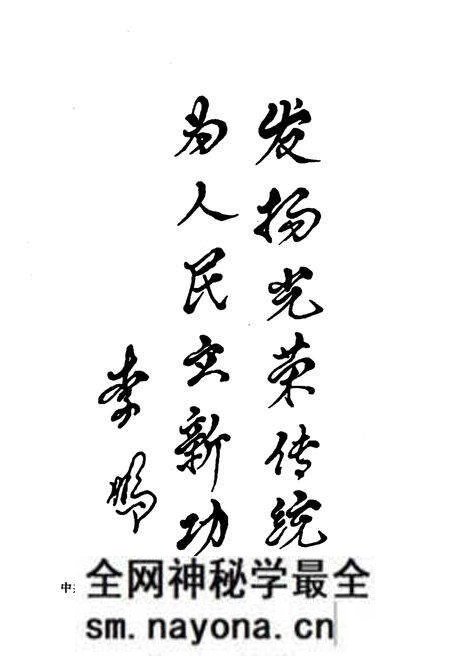 发扬光荣传统
为人民立新功
李鹏
中
全网神秘学最全
sm.nayona.cn